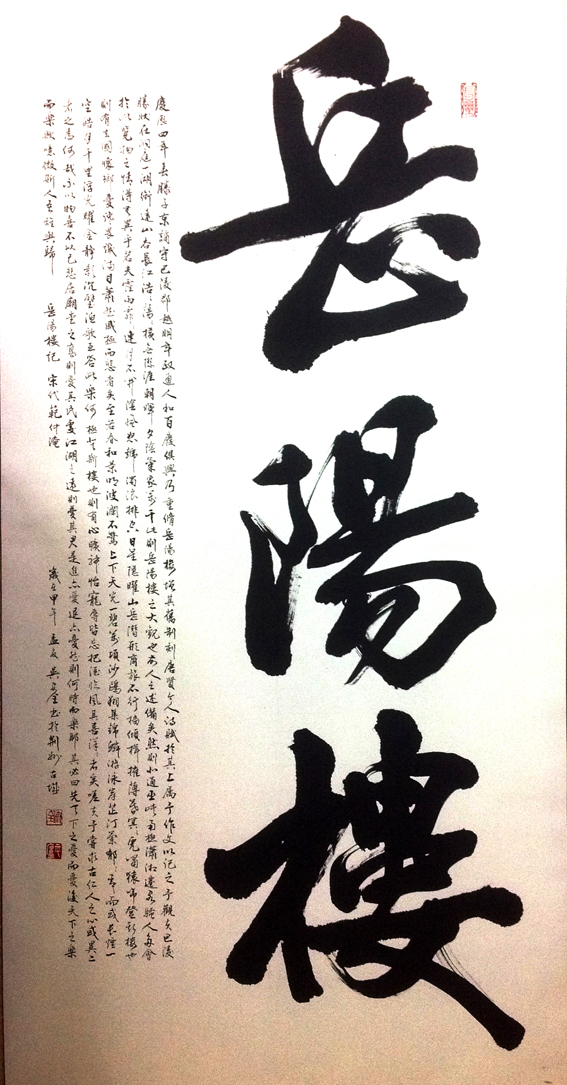 岳陽樓
慶歷四年春滕子京謫守巴陵郡越明年政通人和百廢俱興乃重脩岳陽樓增其舊制刻唐賢今人詩賦於其上属予作文以記之予觀夫巴陵
勝狀在洞庭一湖銜遠山吞長江浩浩湯湯橫無際涯朝暉夕陰氣象萬千此則岳陽樓之大觀也前人之述備矣然則北通巫峽南極瀟湘遷客騷人多會
於此覽物之情得無異乎若夫霪雨霏霏連月不開陰風怒號濁浪排空日星隱曜山岳潛形商旅不行檣傾楫摧薄暮冥冥虎嘯猿啼登斯樓也
則有去國懷鄉憂讒畏譏滿目蕭然感極而悲者矣至若春和景明波瀾不驚上下天光一碧萬頃沙鷗翔集錦鱗游泳岸芷汀蘭郁郁青青而或長煙一
空皓月千里浮光耀金靜影沉璧漁歌互答此樂何極登斯樓也則有心曠神怡寵辱皆忘把酒臨風其喜洋洋者矣嗟夫予嘗求古仁人之心或異二
者之為何哉不以物喜不以己悲居廟堂之高則憂其民處江湖之遠則憂其君是進亦憂退亦憂然則何時而樂耶其必曰先天下之憂而憂後天下之樂
而樂歟噫微斯人吾誰與歸 岳陽樓記 宋代範仲淹 歲在甲午孟夏 書於荊州古城